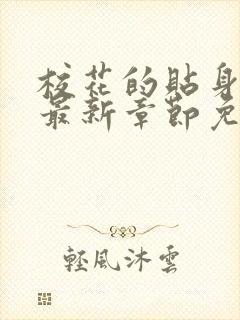 校花的貼身
最新章節免
輕風沐雲